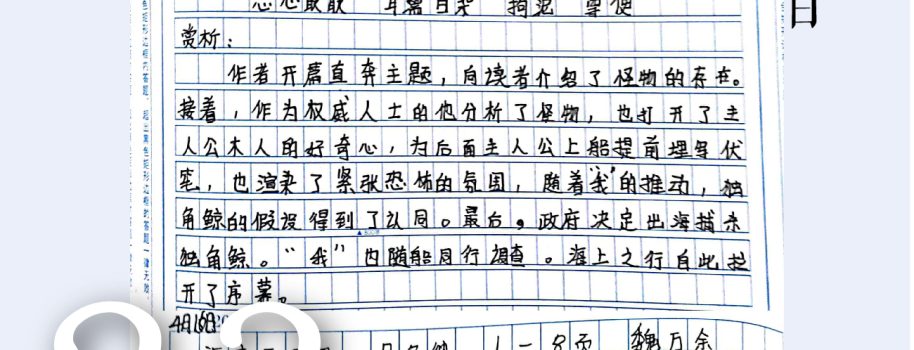 日
耳濡目染
赏析：
作者开篇直奔主题，向读者介绍了怪物的存在。
接着，作为权威人士的他分析了怪物，也打开了主
人公本人的好奇心，为后面主人公上船提前埋导伏
笔，也渲染了紧张恐怖的氛围，随着“我”的推动，独
角鲸的假设得到了认同。最后，政府决定出海捕杀
独角鲸。“我”因随船同行调查。海上之行自此拉
开了序幕。
4月16日
魏万余